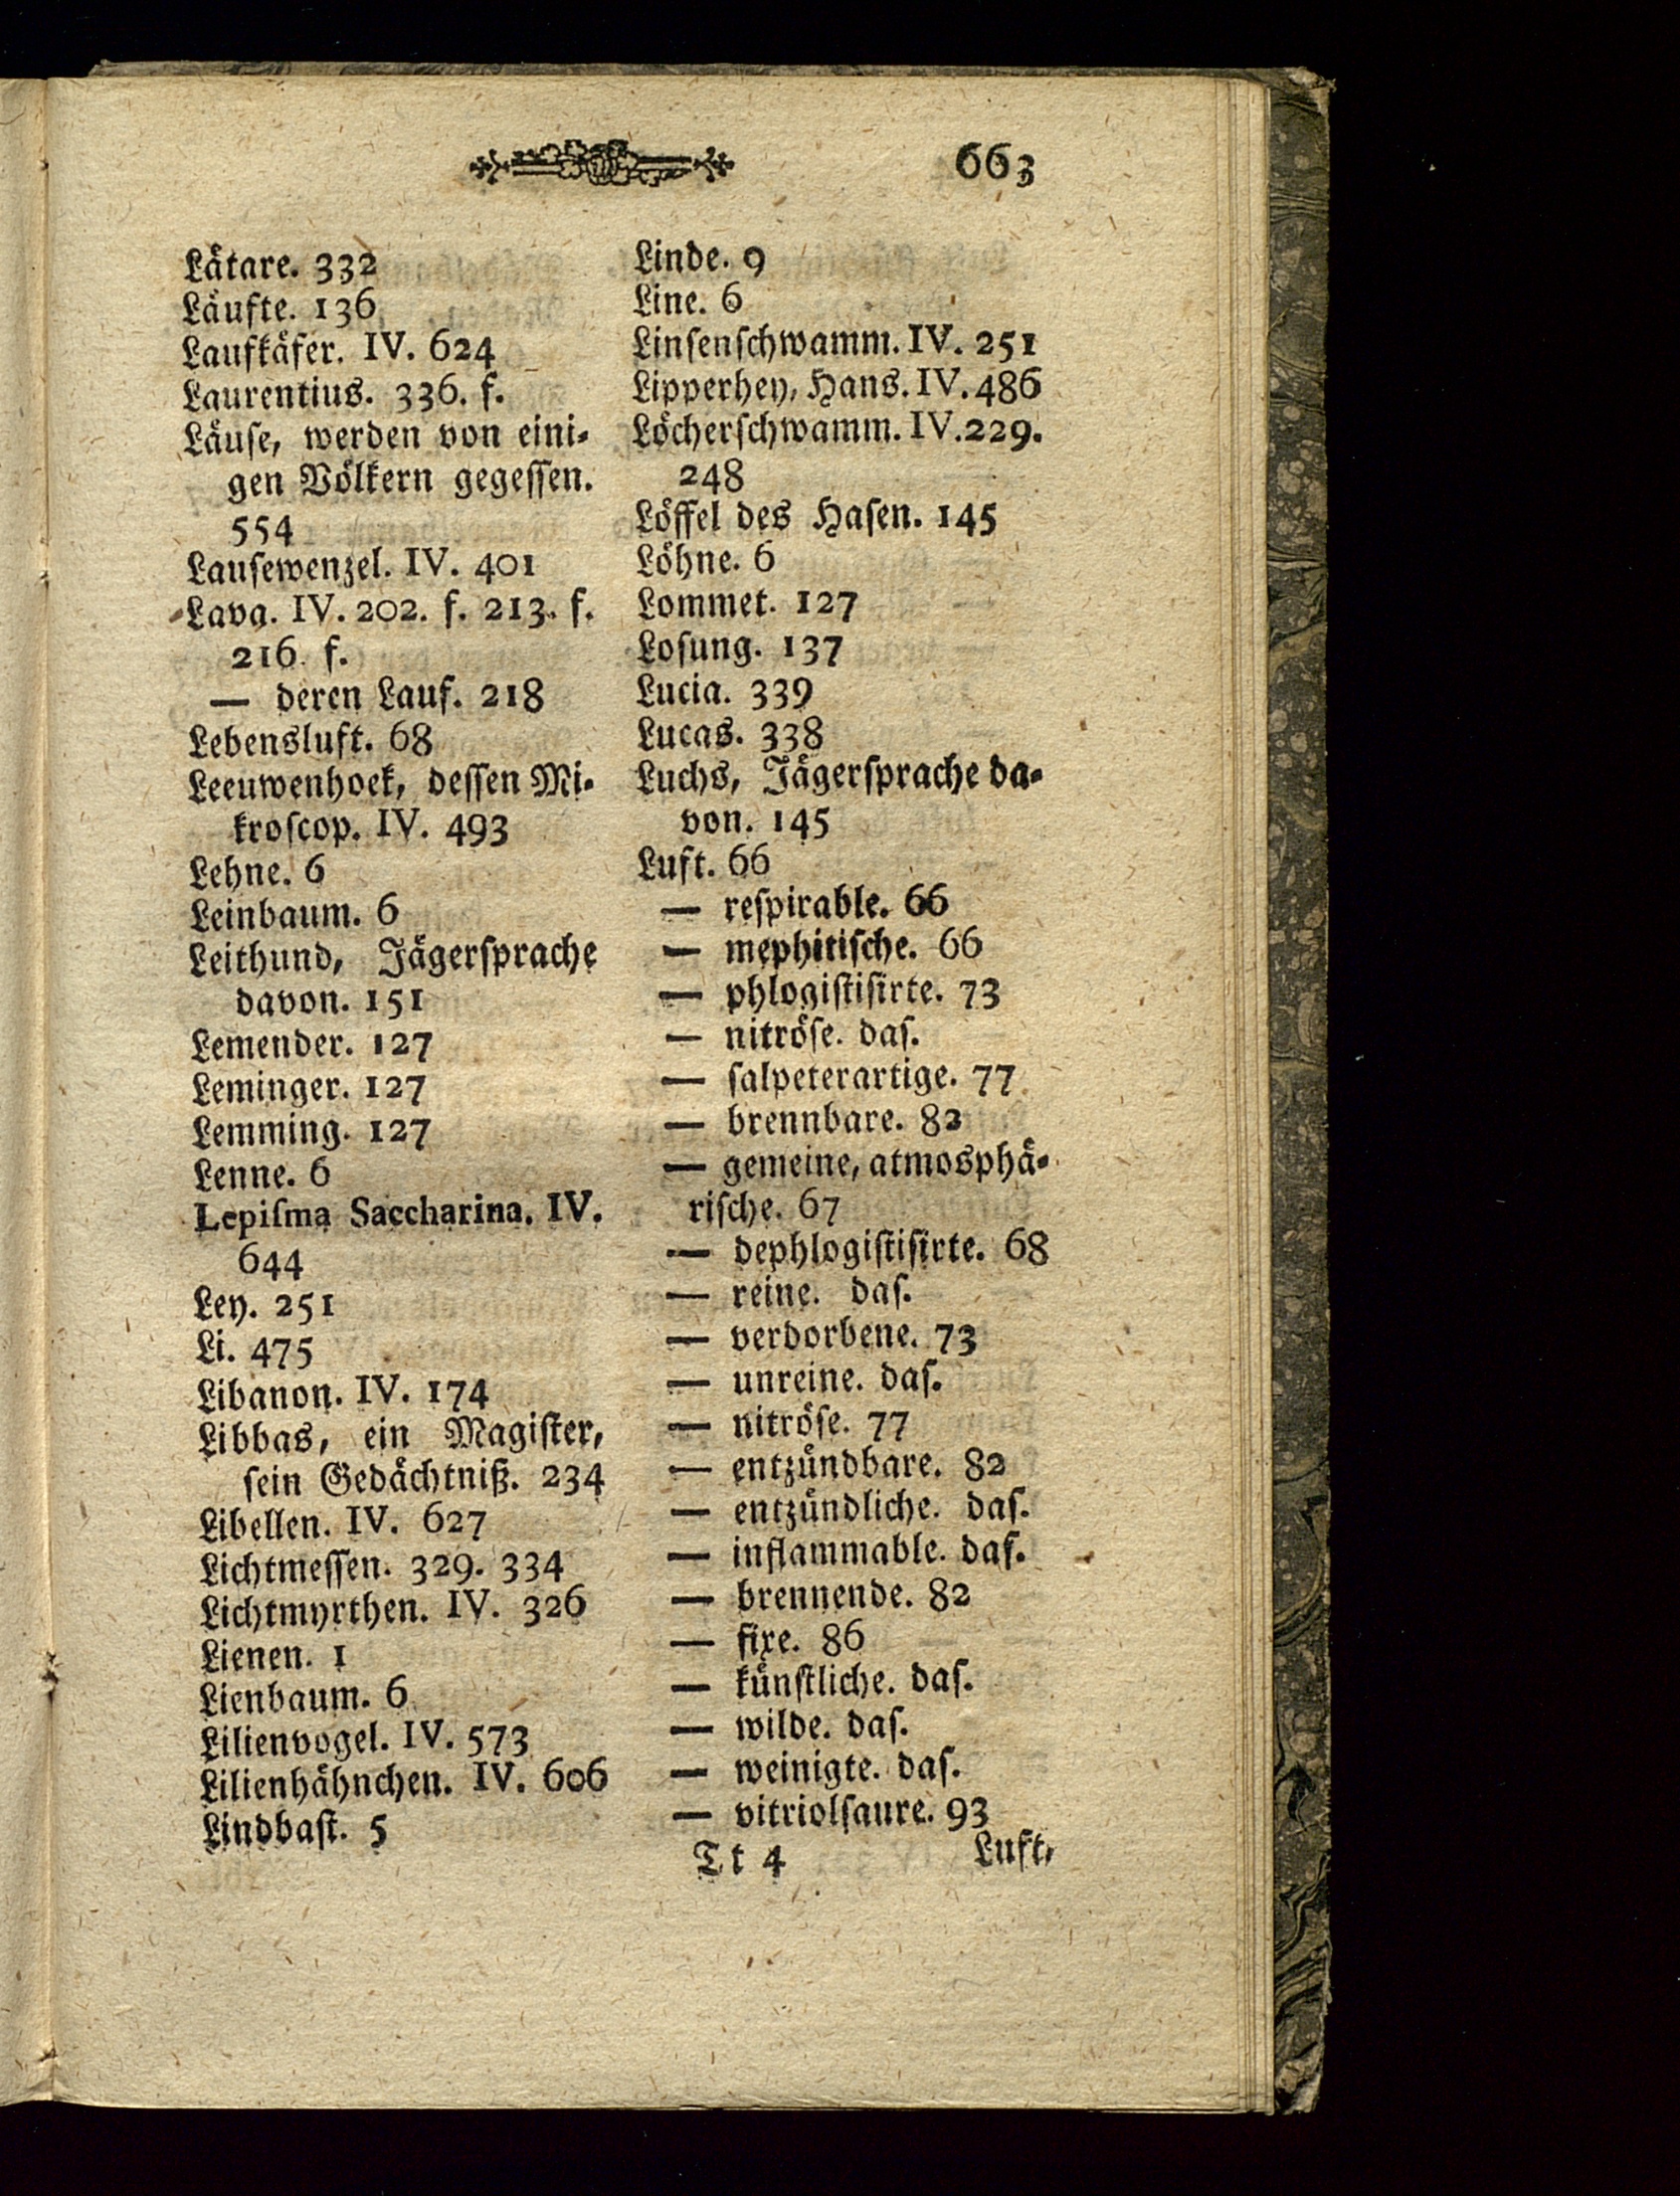 663
Lätare. 332
Läufte. 136
Laufkäfer. IV. 624
Laurentius. 336. f.
Läuse, werden von eini-
gen Völkern gegessen.
554
Lausewenzel. IV. 401
Lava. IV. 202. f. 213. f.
216. f.
— deren Lauf. 218
Lebensluft. 68
Leeuwenhoek, dessen Mi-
kroscop. IV. 493
Lehne. 6
Leinbaum. 6
Leithund, Jägersprache
davon. 151
Lemender. 127
Leminger. 127
Lemming. 127
Lenne. 6
Lepisma Saccharina. IV.
644
Ley. 251
Li. 475
Libanon. IV. 174
Libbas, ein Magister,
sein Gedächtniß. 234
Libellen. IV. 627
Lichtmessen. 329. 334
Lichtmyrthen. IV. 326
Lienen. 1
Lienbaum. 6
Lilienvogel. IV. 573
Lilienhähnchen. IV. 606
Lindbast. 5
Linde. 9
Line. 6
Linsenschwamm. IV. 251
Lipperhey, Hans. IV. 486
Löcherschwamm. IV. 229.
248
Löffel des Hasen. 145
Löhne. 6
Lommet. 127
Losung. 137
Lucia. 339
Lucas. 338
Luchs, Jägersprache da-
von. 145
Luft. 66
— respirable. 66
— mephitische. 66
— phlogistisirte. 73
— nitröse. das.
— salpeterartige. 77
— brennbare. 82
— gemeine, atmosphä-
rische. 67
— dephlogistisirte. 68
— reine. das.
— verdorbene. 73
— unreine. das.
— nitröse. 77
— entzündbare. 82
— entzündliche. das.
— inflammable. das.
— brennende. 82
— fixe. 86
— künstliche. das.
— wilde. das.
— weinigte. das.
— vitriolsaure. 93
Tt 4 Luft,